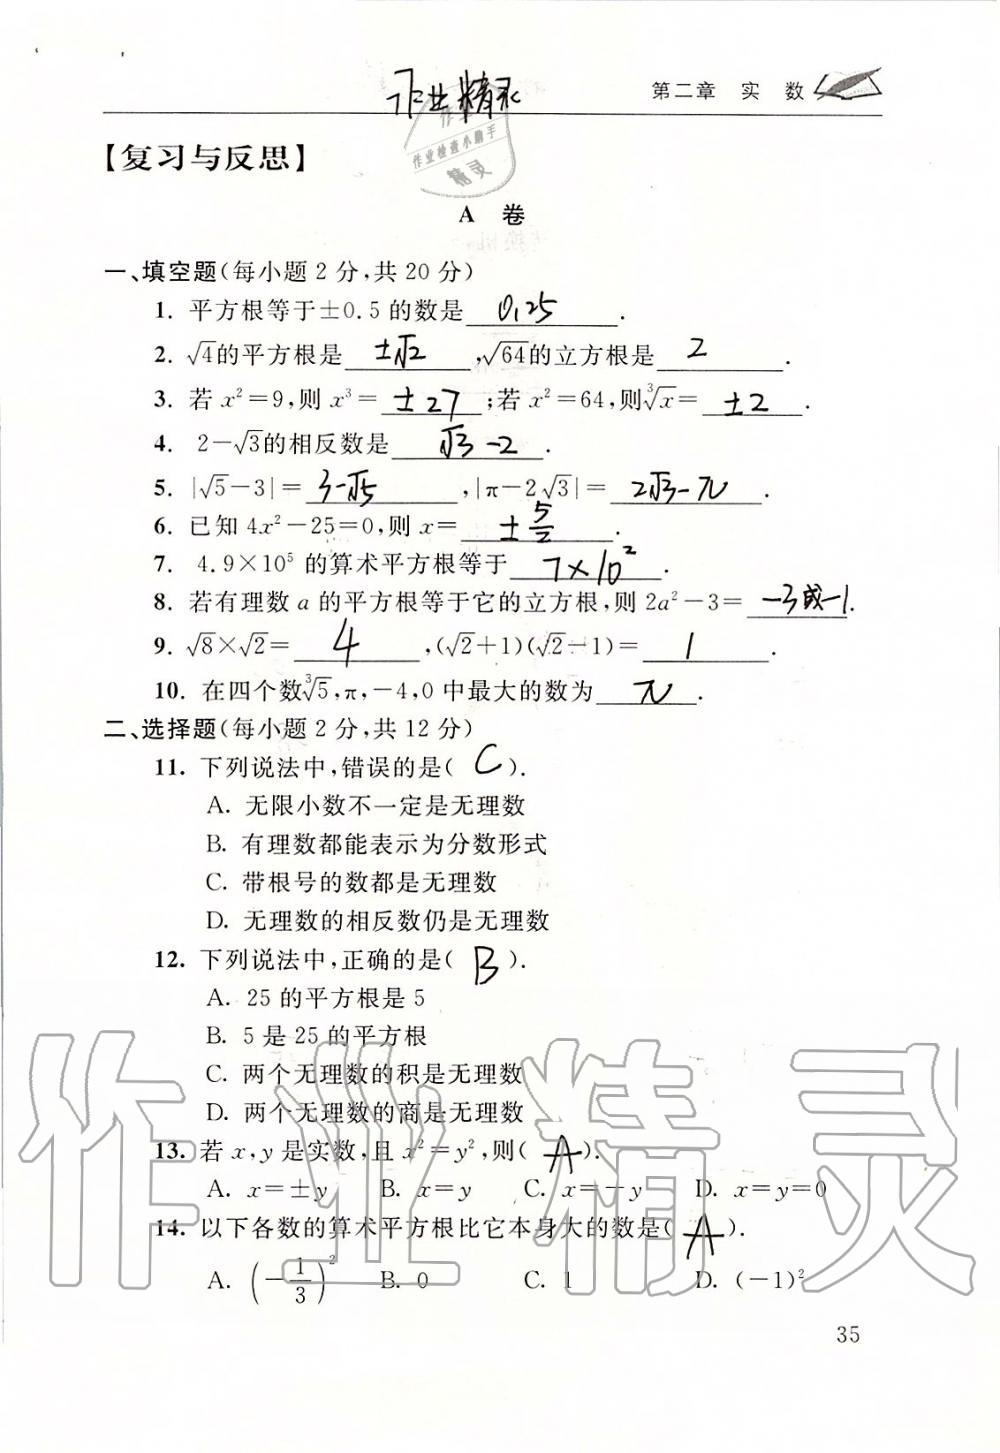 作业精灵
第二章 实 数
作业检查小助手
精灵
【复习与反思】
A 卷
一、填空题(每小题 2 分,共 20 分)
1. 平方根等于±0.5 的数是 0.25 .
2. √4的平方根是 ±√2 ,√64的立方根是 2 .
3. 若 x²=9,则 x³= ±27 ;若 x²=64,则∛x= ±2 .
4. 2-√3的相反数是 √3-2 .
5. |√5-3|= 3-√5 ,|π-2√3|= 2√3-π .
6. 已知 4x²-25=0,则 x= ±5/2 .
7. 4.9×10⁵ 的算术平方根等于 7×10² .
8. 若有理数 a 的平方根等于它的立方根,则 2a²-3= -3或-1 .
9. √8×√2= 4 ,(√2+1)(√2-1)= 1 .
10. 在四个数∛5,π,-4,0 中最大的数为 π .
二、选择题(每小题 2 分,共 12 分)
11. 下列说法中,错误的是( C ).
A. 无限小数不一定是无理数
B. 有理数都能表示为分数形式
C. 带根号的数都是无理数
D. 无理数的相反数仍是无理数
12. 下列说法中,正确的是( B ).
A. 25 的平方根是 5
B. 5 是 25 的平方根
C. 两个无理数的积是无理数
D. 两个无理数的商是无理数
13. 若 x,y 是实数,且 x²=y²,则( A ).
A. x=±y B. x=y C. x=-y D. x=y=0
14. 以下各数的算术平方根比它本身大的数是( A ).
A. (-1/3)² B. 0 C. 1 D. (-1)²
作业精灵
35